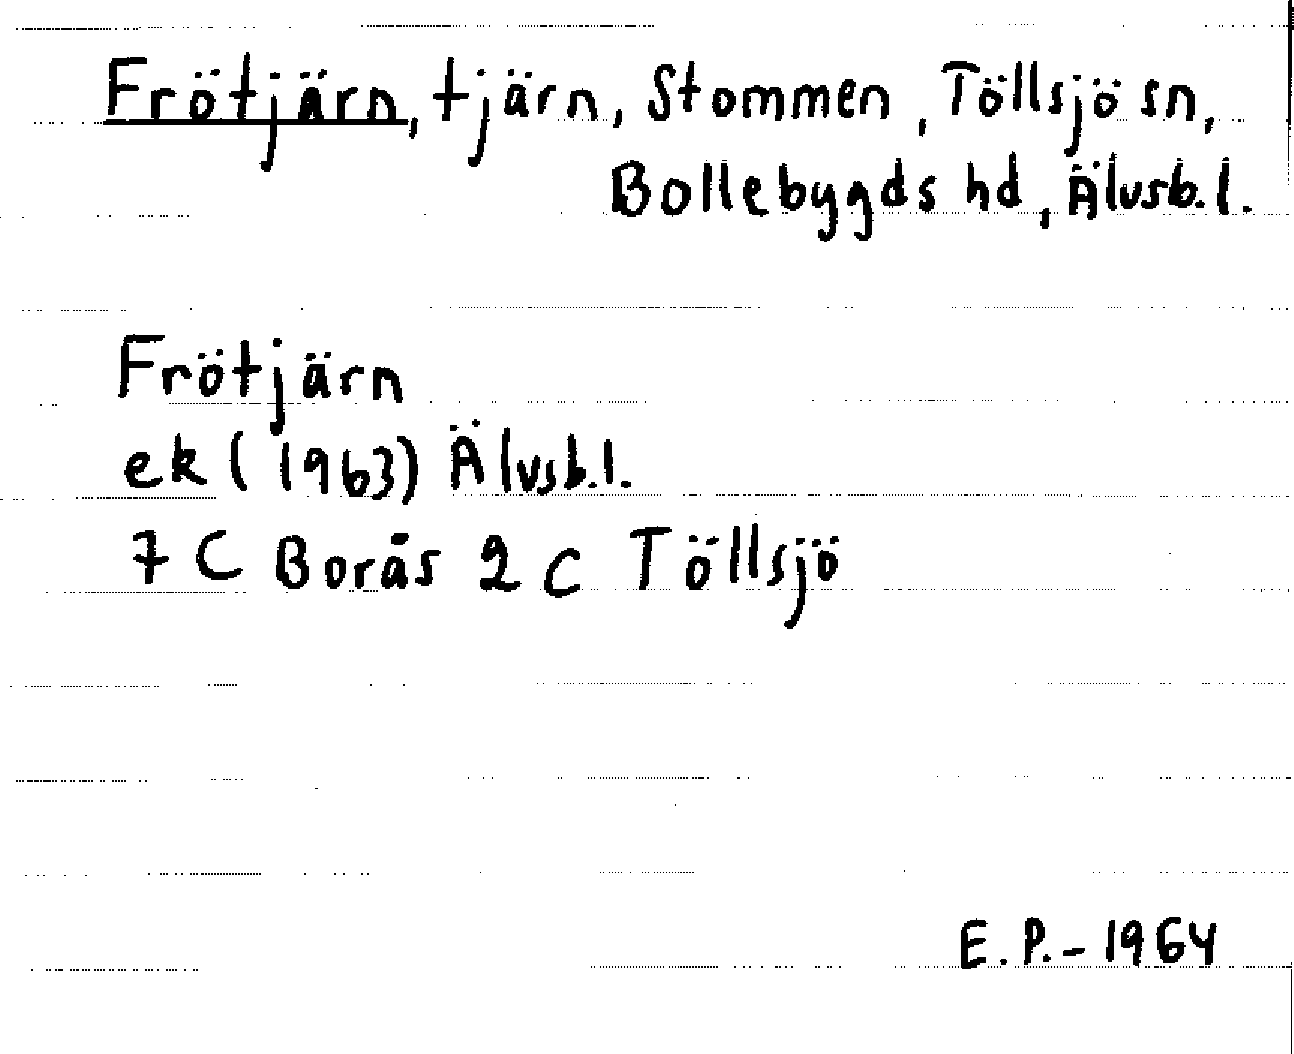 Frötjärn, tjärn, Stommen, Töllsjö sn,
Bollebygds hd, Älvsb.l.
Frötjärn
ek (1963) Älvsb.l.
7 C Borås 2 c Töllsjö
E.P.-1964